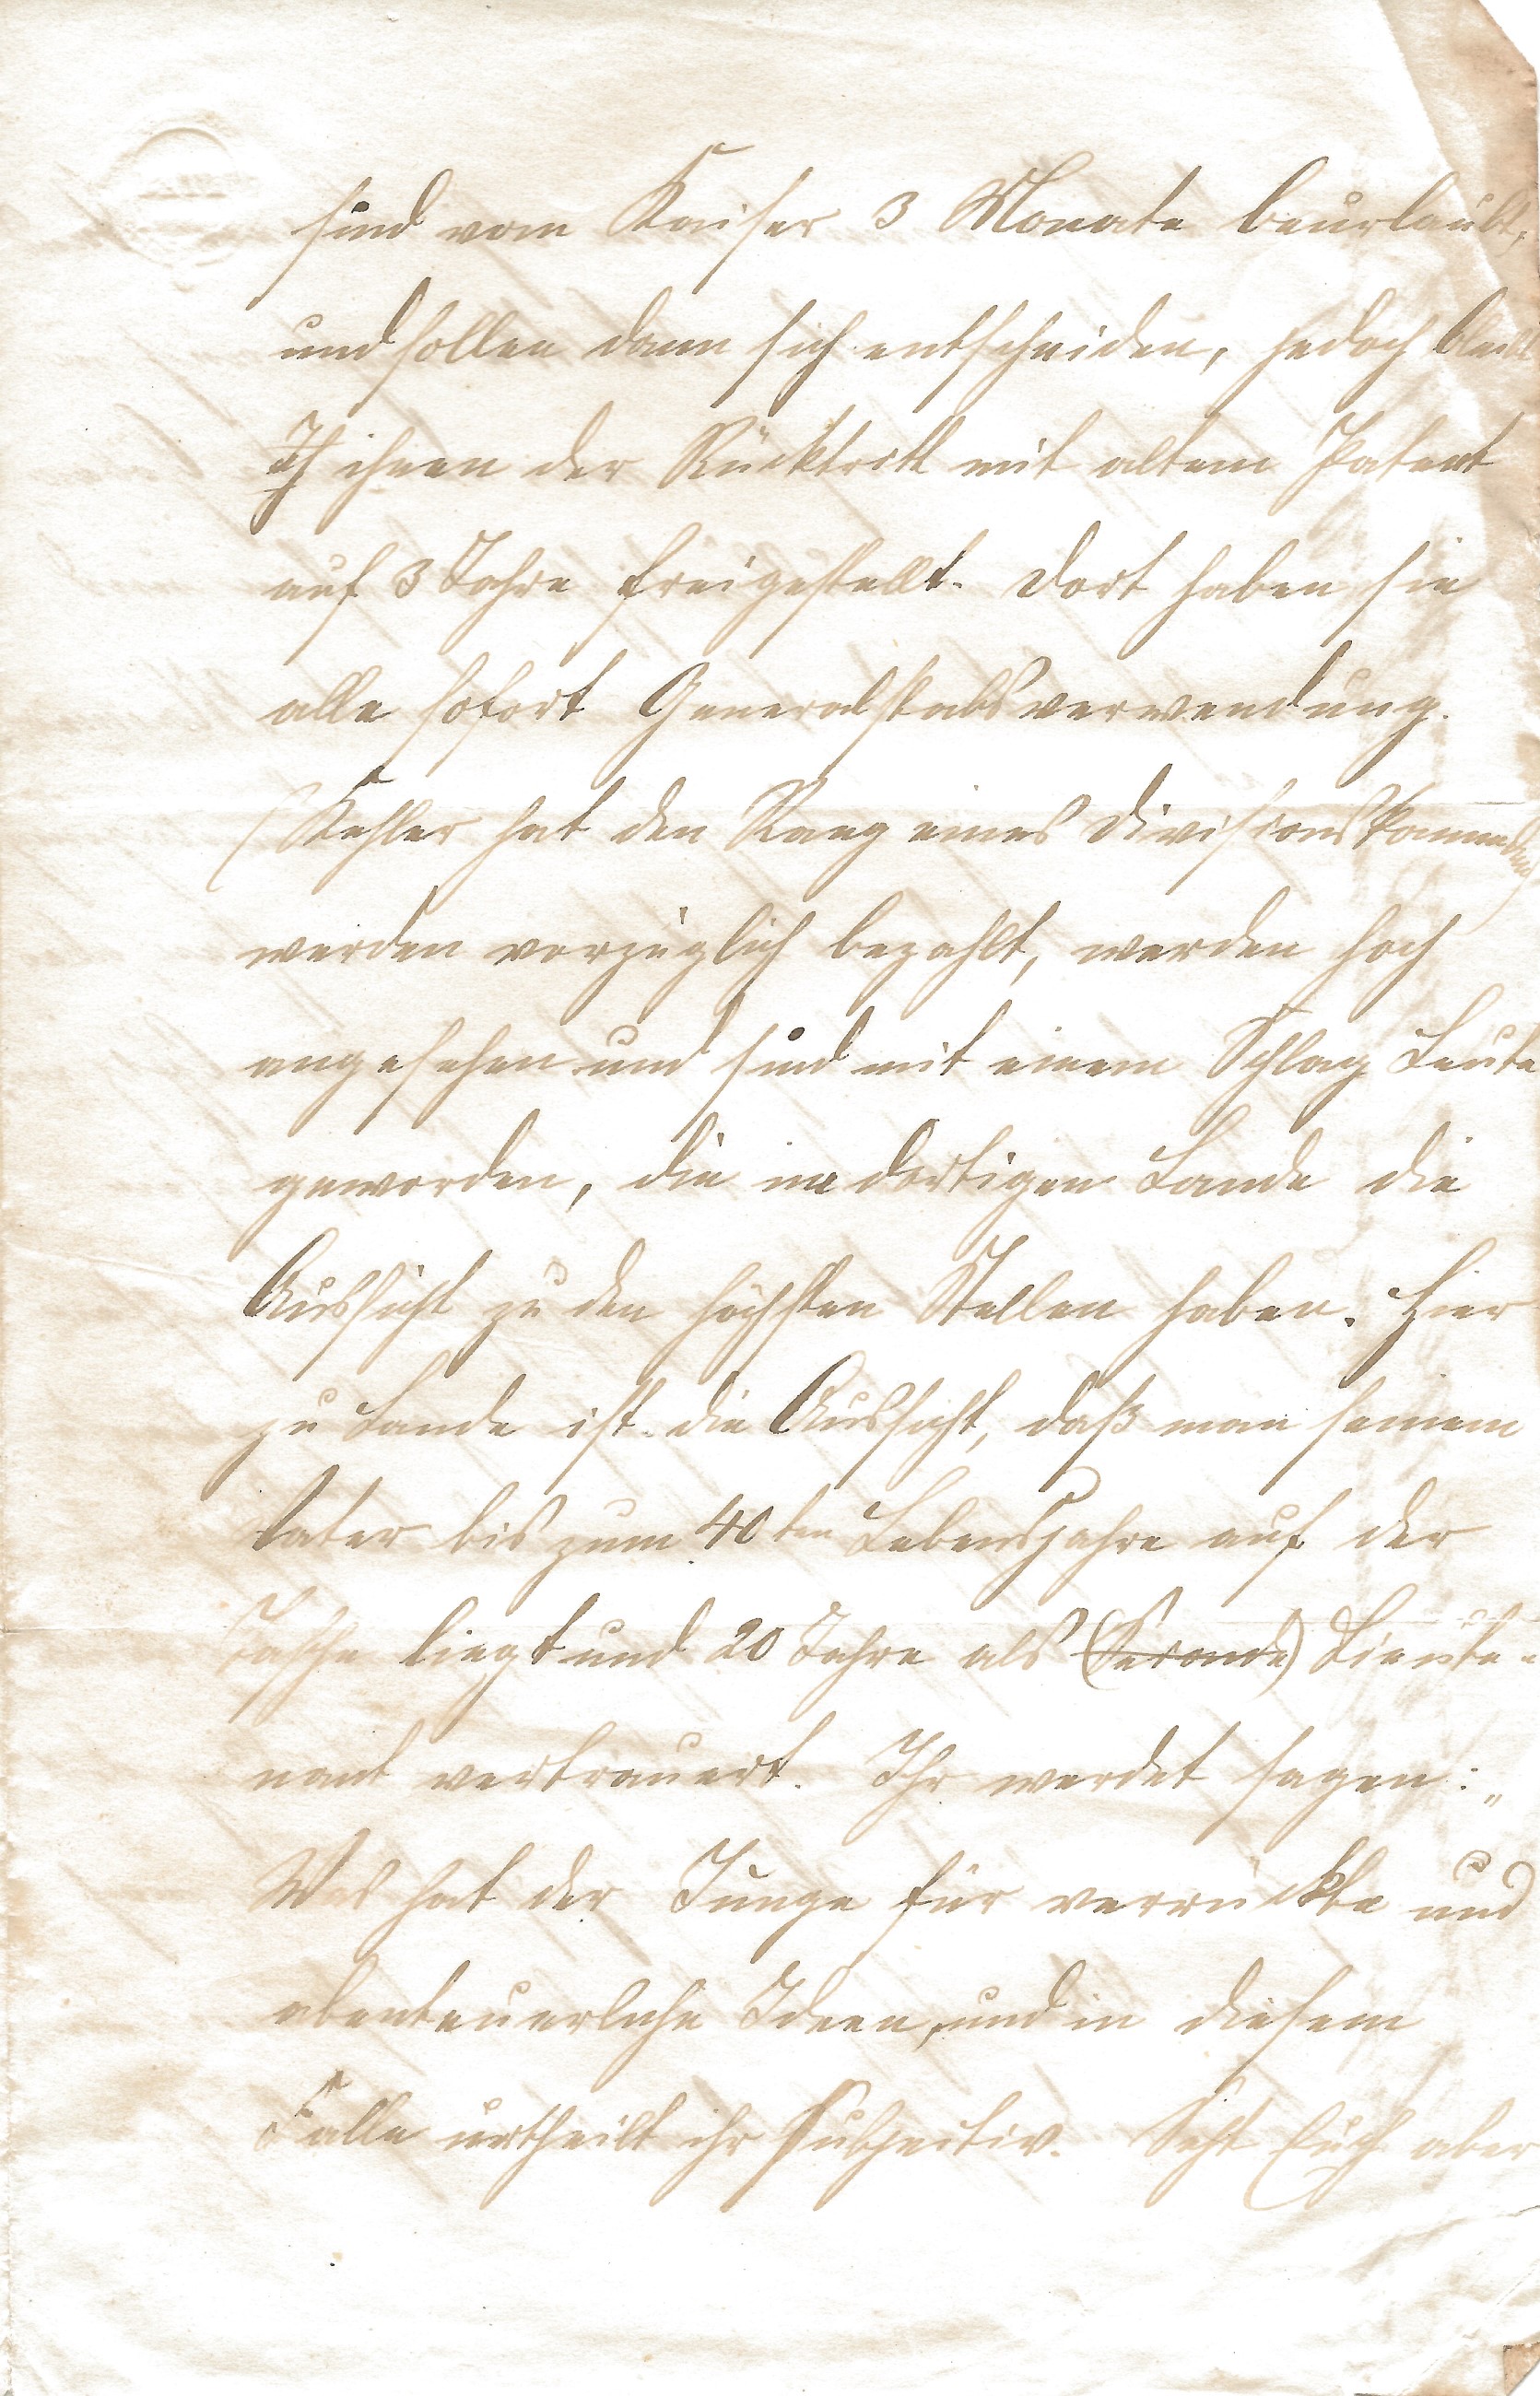 sind vom Kaiser 3 Monate beurlaubt,
und sollen dann sich entscheiden, jedoch bleibt
ihnen der Rücktritt mit altem Patent
auf 3 Jahre freigestellt. Dort haben sie
alle sofort Generalstabsverwendung.
(Kehler hat den Rang eines Divisionskommandeurs)
werden vorzüglich bezahlt, werden hoch
angesehen und sind mit einem Schlag Leute
geworden, die im dortigen Lande die
Aussicht zu den höchsten Stellen haben. Hier
zu Lande ist die Aussicht, daß man seinem
Vater bis zum 40ten Lebensjahre auf der
Tasche liegt und 20 Jahre als (Seconde) Lieute-
nant vertrauert. Ihr werdet sagen: „
Was hat der Junge für verrückte und
abenteuerliche Ideen, und in diesem
Falle urtheilt ihr subjectiv. Seht Euch aber